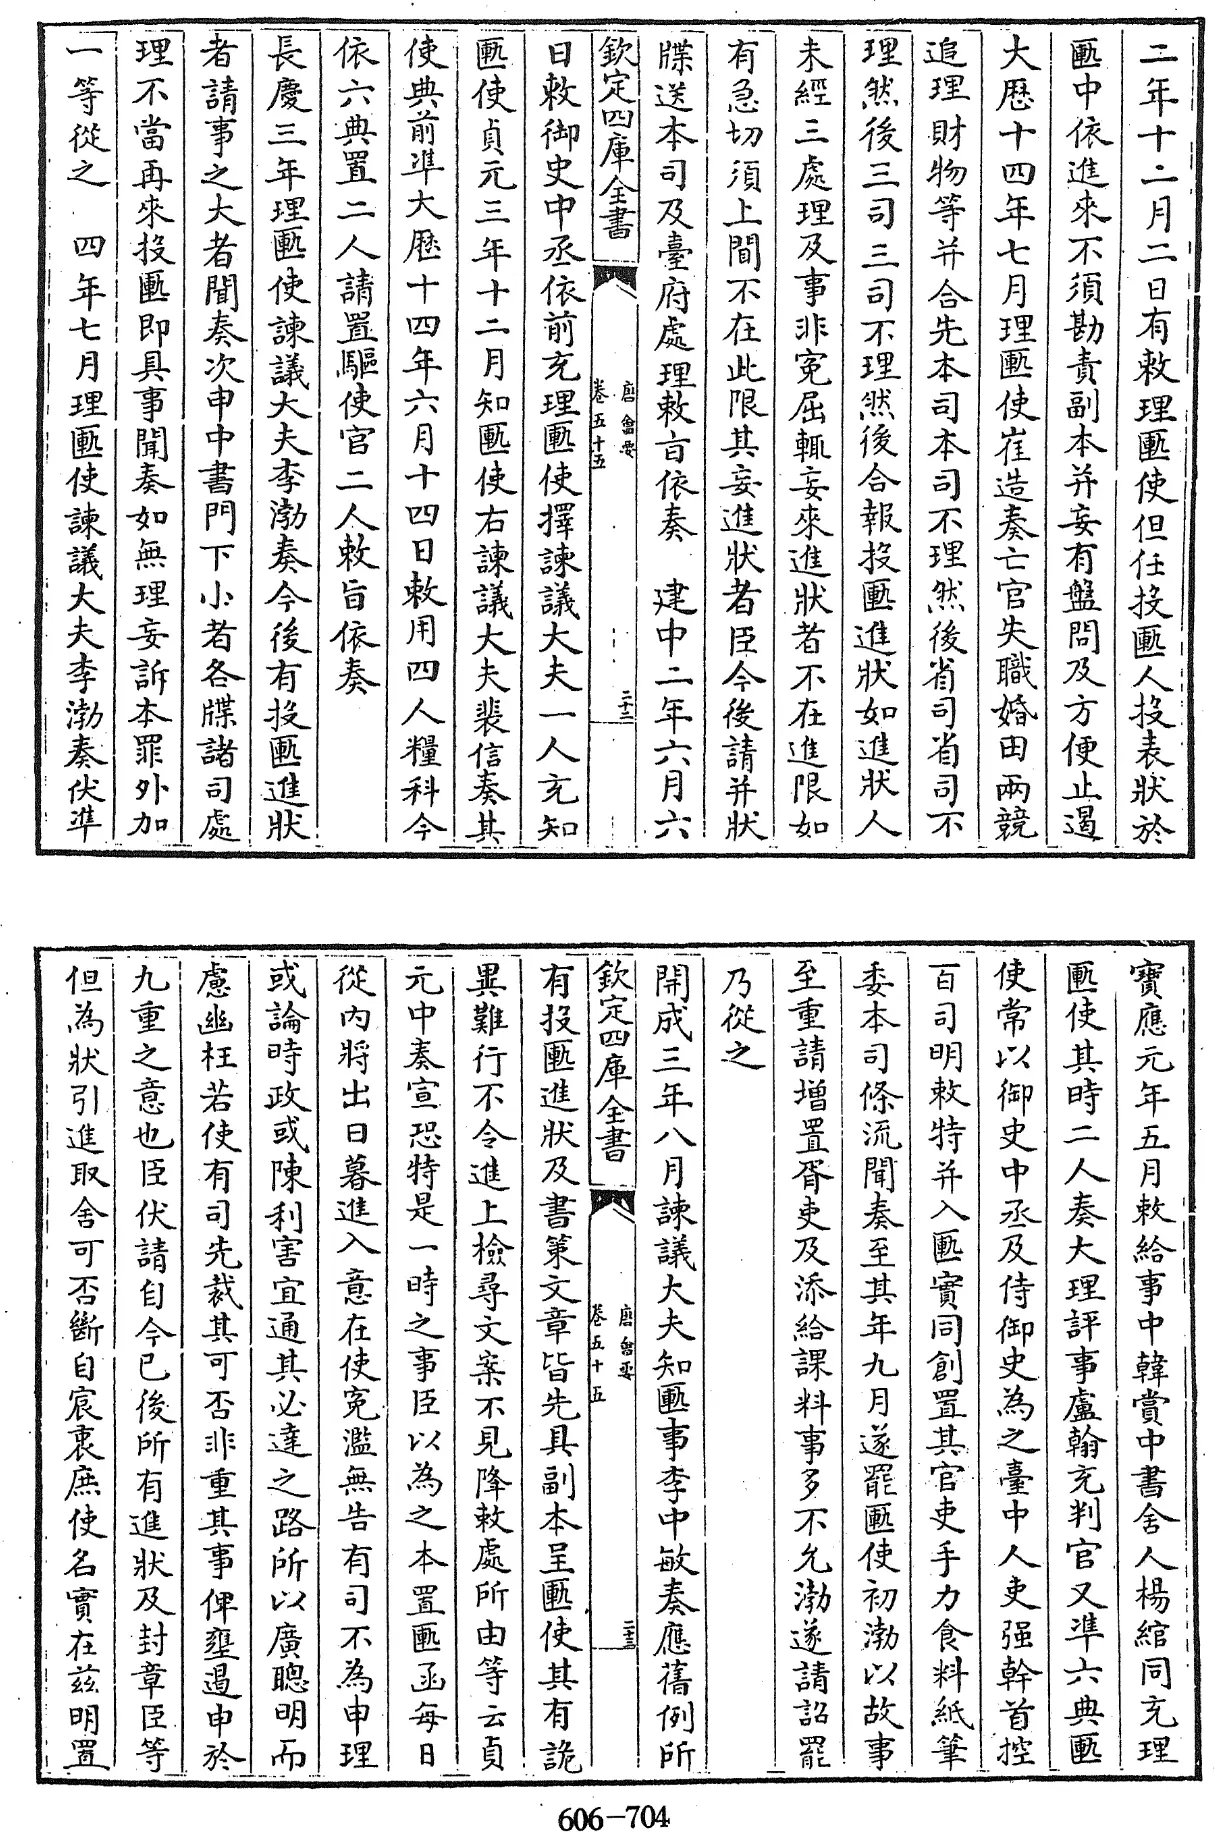 二年十二月二日有敕理匭使但任投匭人投表狀於
匭中依進來不須勘責副本并妄有盤問及方便止遏
大歴十四年七月理匭使崔造奏亡官失職婚田兩競
追理財物等并合先本司本司不理然後省司省司不
理然後三司三司不理然後合報投匭進狀如進狀人
未經三處理及事非寃屈輒妄來進狀者不在進限如
有急切須上聞不在此限其妄進狀者臣今後請并狀
牒送本司及臺府處理敕旨依奏　建中二年六月六
欽定四庫全書
唐會要
卷五十五
二十二
日敕御史中丞依前充理匭使擇諫議大夫一人充知
匭使貞元三年十二月知匭使右諫議大夫裴信奏其
使典前準大歴十四年六月十四日敕用四人糧科今
依六典置二人請置驅使官二人敕旨依奏
長慶三年理匭使諫議大夫李渤奏今後有投匭進狀
者請事之大者聞奏次申中書門下小者各牒諸司處
理不當再來投匭即具事聞奏如無理妄訴本罪外加
一等從之　四年七月理匭使諫議大夫李渤奏伏準
寶應元年五月敕給事中韓賞中書舍人楊綰同充理
匭使其時二人奏大理評事盧翰充判官又準六典匭
使常以御史中丞及侍御史為之臺中人吏强幹首控
百司明敕特并入匭實同創置其官吏手力食料紙筆
委本司條流聞奏至其年九月遂罷匭使初渤以故事
至重請增置胥吏及添給課料事多不允渤遂請詔罷
乃從之
開成三年八月諫議大夫知匭事李中敏奏應舊例所
欽定四庫全書
唐會要
卷五十五
二十三
有投匭進狀及書策文章皆先具副本呈匭使其有詭
異難行不令進上檢尋文案不見降敕處所由等云貞
元中奏宣恐特是一時之事臣以為之本置匭函每日
從内將出日暮進入意在使寃濫無告有司不為申理
或論時政或陳利害宜通其必達之路所以廣聰明而
慮幽枉若使有司先裁其可否非重其事俾壅遏申於
九重之意也臣伏請自今已後所有進狀及封章臣等
但為狀引進取舍可否斷自宸衷庶使名實在兹明置
606-704